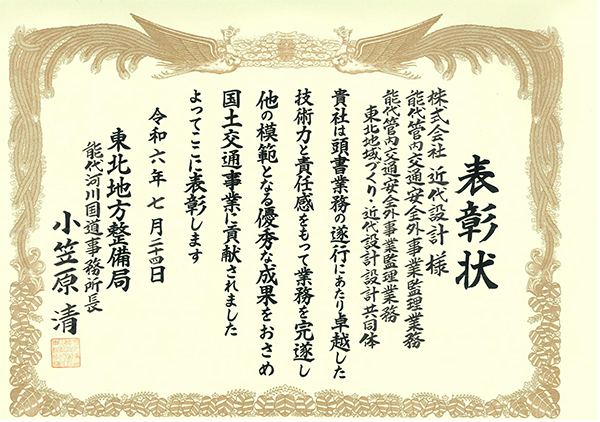 表彰状
株式会社 近代設計 様
能代管内交通安全外事業監理業務
能代管内交通安全外事業監理業務
東北地域づくり・近代設計設計共同体
貴社は頭書業務の遂行にあたり卓越した
技術力と責任感をもって業務を完遂し
他の模範となる優秀な成果をおさめ
国土交通事業に貢献されました
よってここに表彰します
令和六年七月二十四日
東北地方整備局
能代河川国道事務所長
小笠原 清